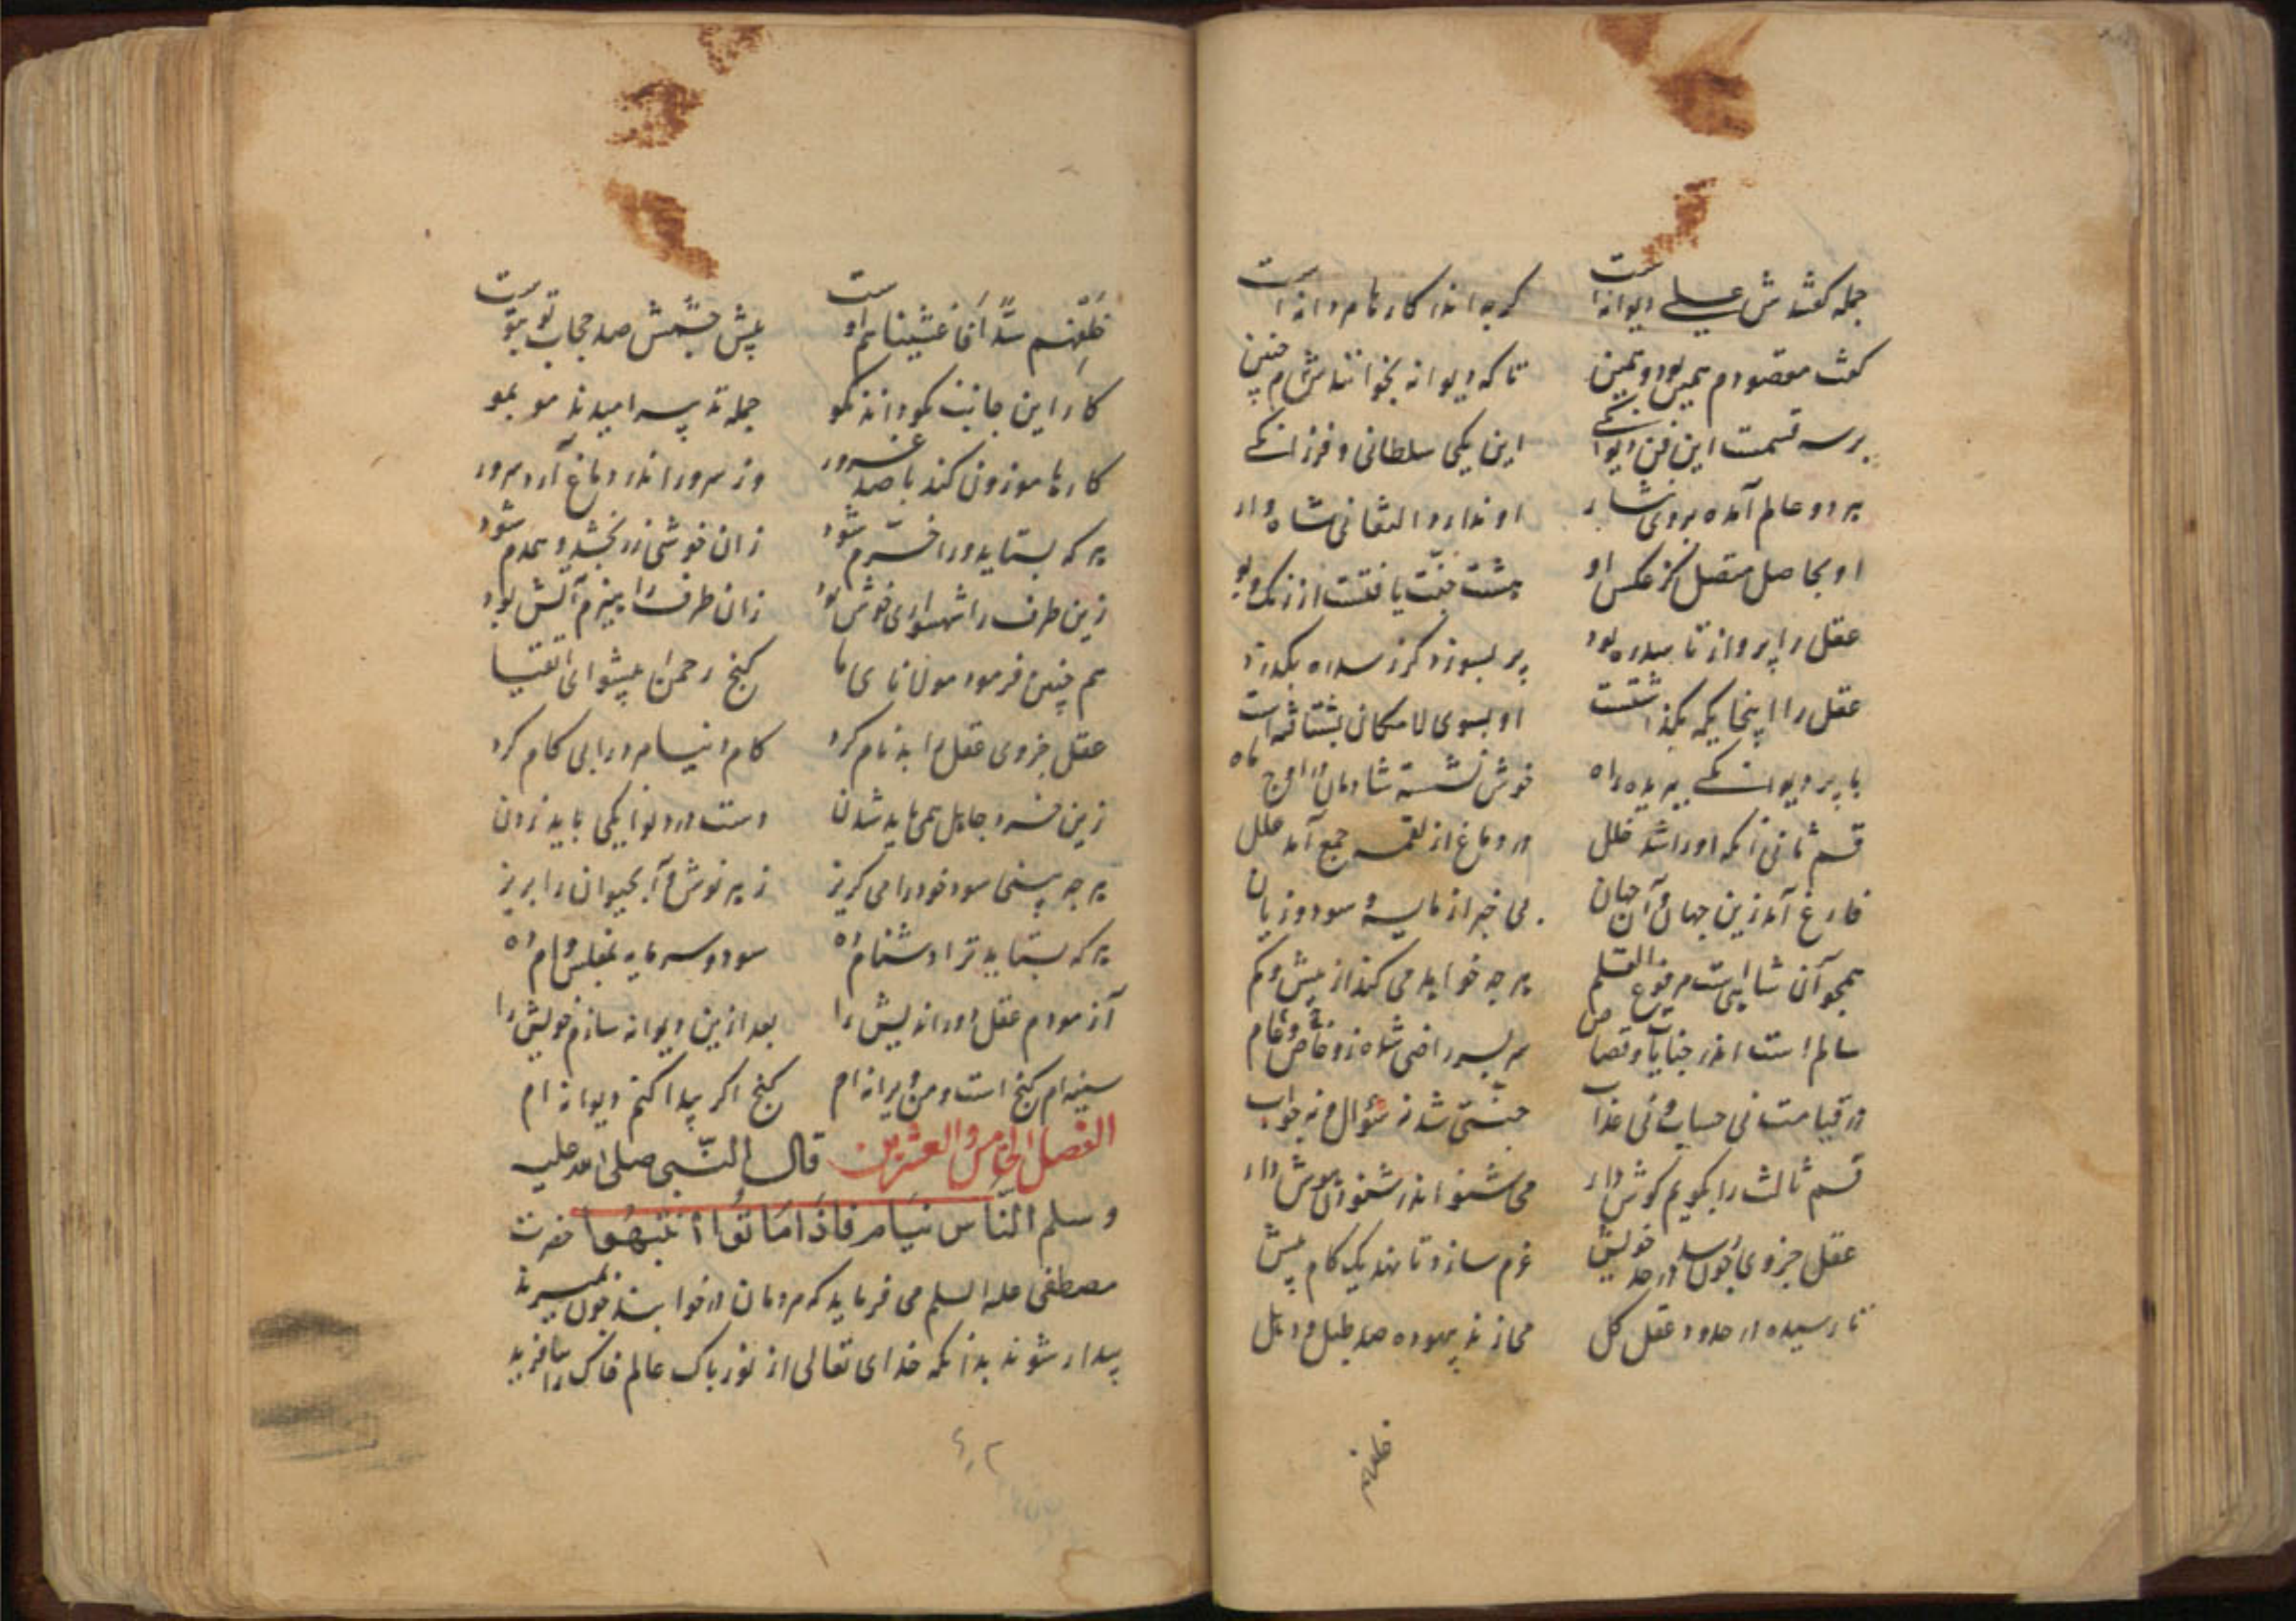 جمله گفتندش علی دیوانه است گرچه اندر کارها مردانه است
گفت مقصودم همین بود و همین تا که دیوانه بخوانندش چنین
بر سه قسمت این فن دیوانگی این یکی سلطانی و فرزانگی
هر دو عالم آمده بر وی نثار او ندارد التفاتی شاه وار
او بحاصل متصل کز عکس او هشت جنت یافتست از رنگ و بو
عقل را پرواز تا سدره بود پر بسوزد گر ز سدره بگذرد
عقل را اینجایگه بگذاشتست او بسوی لامکان بشتافتست
با پر دیوانگی ببریده راه خوش نشسته شادمان در اوج ماه
قسم ثانی آنکه او را شد خلل در دماغ از لقمه جمع آمد علل
فارغ آمد زین جهان و آن جهان بی خبر از مایه و سود و زیان
همچو آن شاهیست مرفوع القلم هر چه خواهد می کند از بیش و کم
سالم است اندر جنایات و قصاص سر بسر راضی شده زو خاص و عام
در قیامت نی حساب و نی عذاب جنتی شد نه سئوال و نه جواب
قسم ثالث را بگویم گوش دار می شنو اندر شنودن هوش دار
عقل جزوی چون رسد در حد خویش عزم سازد تا نهد یک گام پیش
نارسیده در حدود عقل کل می زند بیهوده صد طبل و دهل
خلفهم
خلفهم سدا فاغشیناهم اوست پیش چشمش صد حجاب تو بتوست
کار این جانب نکو داند نکو جمله تدبیر امیدند مو بمو
کارها موزون کند با صد غرور وز سرور اندر دماغ آرد سرور
هر که بستاید ورا خرم شود زان خوشی زر بخشد و همدم شود
زین طرف را شهسواری خوش بود زان طرف را هیزم آتش بود
هم چنین فرمود مولانای ما گنج رحمن پیشوای اتقیا
عقل جزوی عقل را بدنام کرد کام دنیا مرد را بی کام کرد
زین خرد جاهل همی باید شدن دست در دیوانگی باید زدن
هر چه بینی سود خود را می گریز زهر نوش و آب حیوان را بریز
هر که بستاید ترا دشنام ده سود و سرمایه بمفلس وام ده
آزمودم عقل دور اندیش را بعد ازین دیوانه سازم خویش را
سینه ام گنج است و من ویرانه ام گنج اگر پیدا کنم دیوانه ام
الفصل الخامس والعشرین قال النبی صلی الله علیه
وسلم الناس نیام فاذا ماتوا انتبهوا حضرت
مصطفی علیه السلم می فرماید که مردمان در خوابند چون بمیرند
بیدار شوند بدانکه خدای تعالی از نور پاک عالم خاک را بیافرید